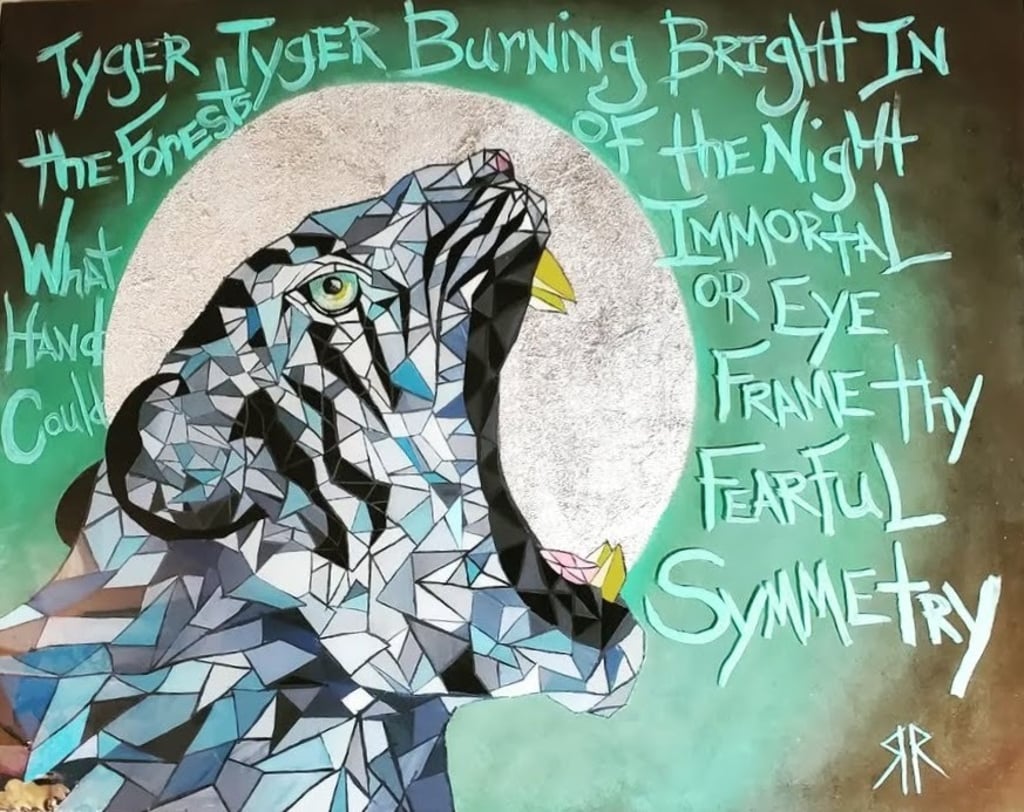 Tyger Tyger Burning Bright In
the Forests of the Night
What Immortal
Hand or Eye
Could Frame thy
Fearful
Symmetry
RR